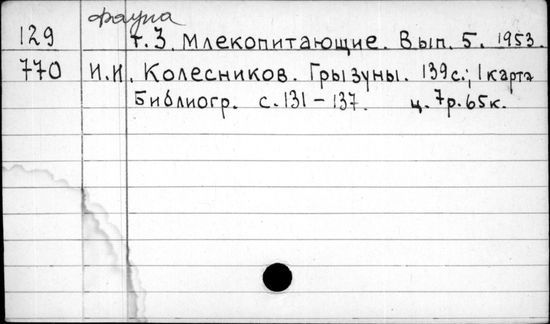 фауна
129 т.3. Млекопитающие. Вып. 5. 1953.
770 И.И. Колесников. Грызуны. 139с.; 1 карта
Библиогр. с.131-137. ц. 7р.65к.